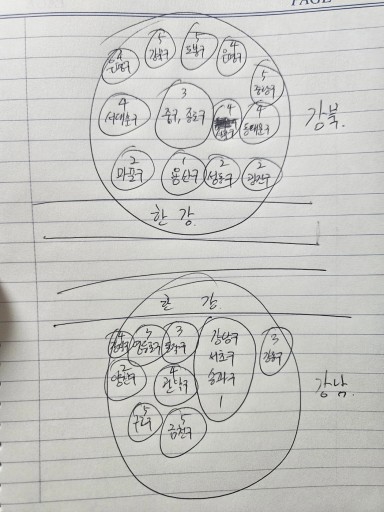 PAGE
5
강북구
5
도봉구
4
4
5
중랑구
4
서대문구
3
중구, 종로구
4
4
동대문구
강북.
2
마포구
1
용산구
2
성동구
2
광진구
한 강
한 강
4
강서구
3
영등포구
3
동작구
강남구
서초구
송파구
1
3
강동구
2
양천구
4
관악구
강남.
5
구로구
5
금천구